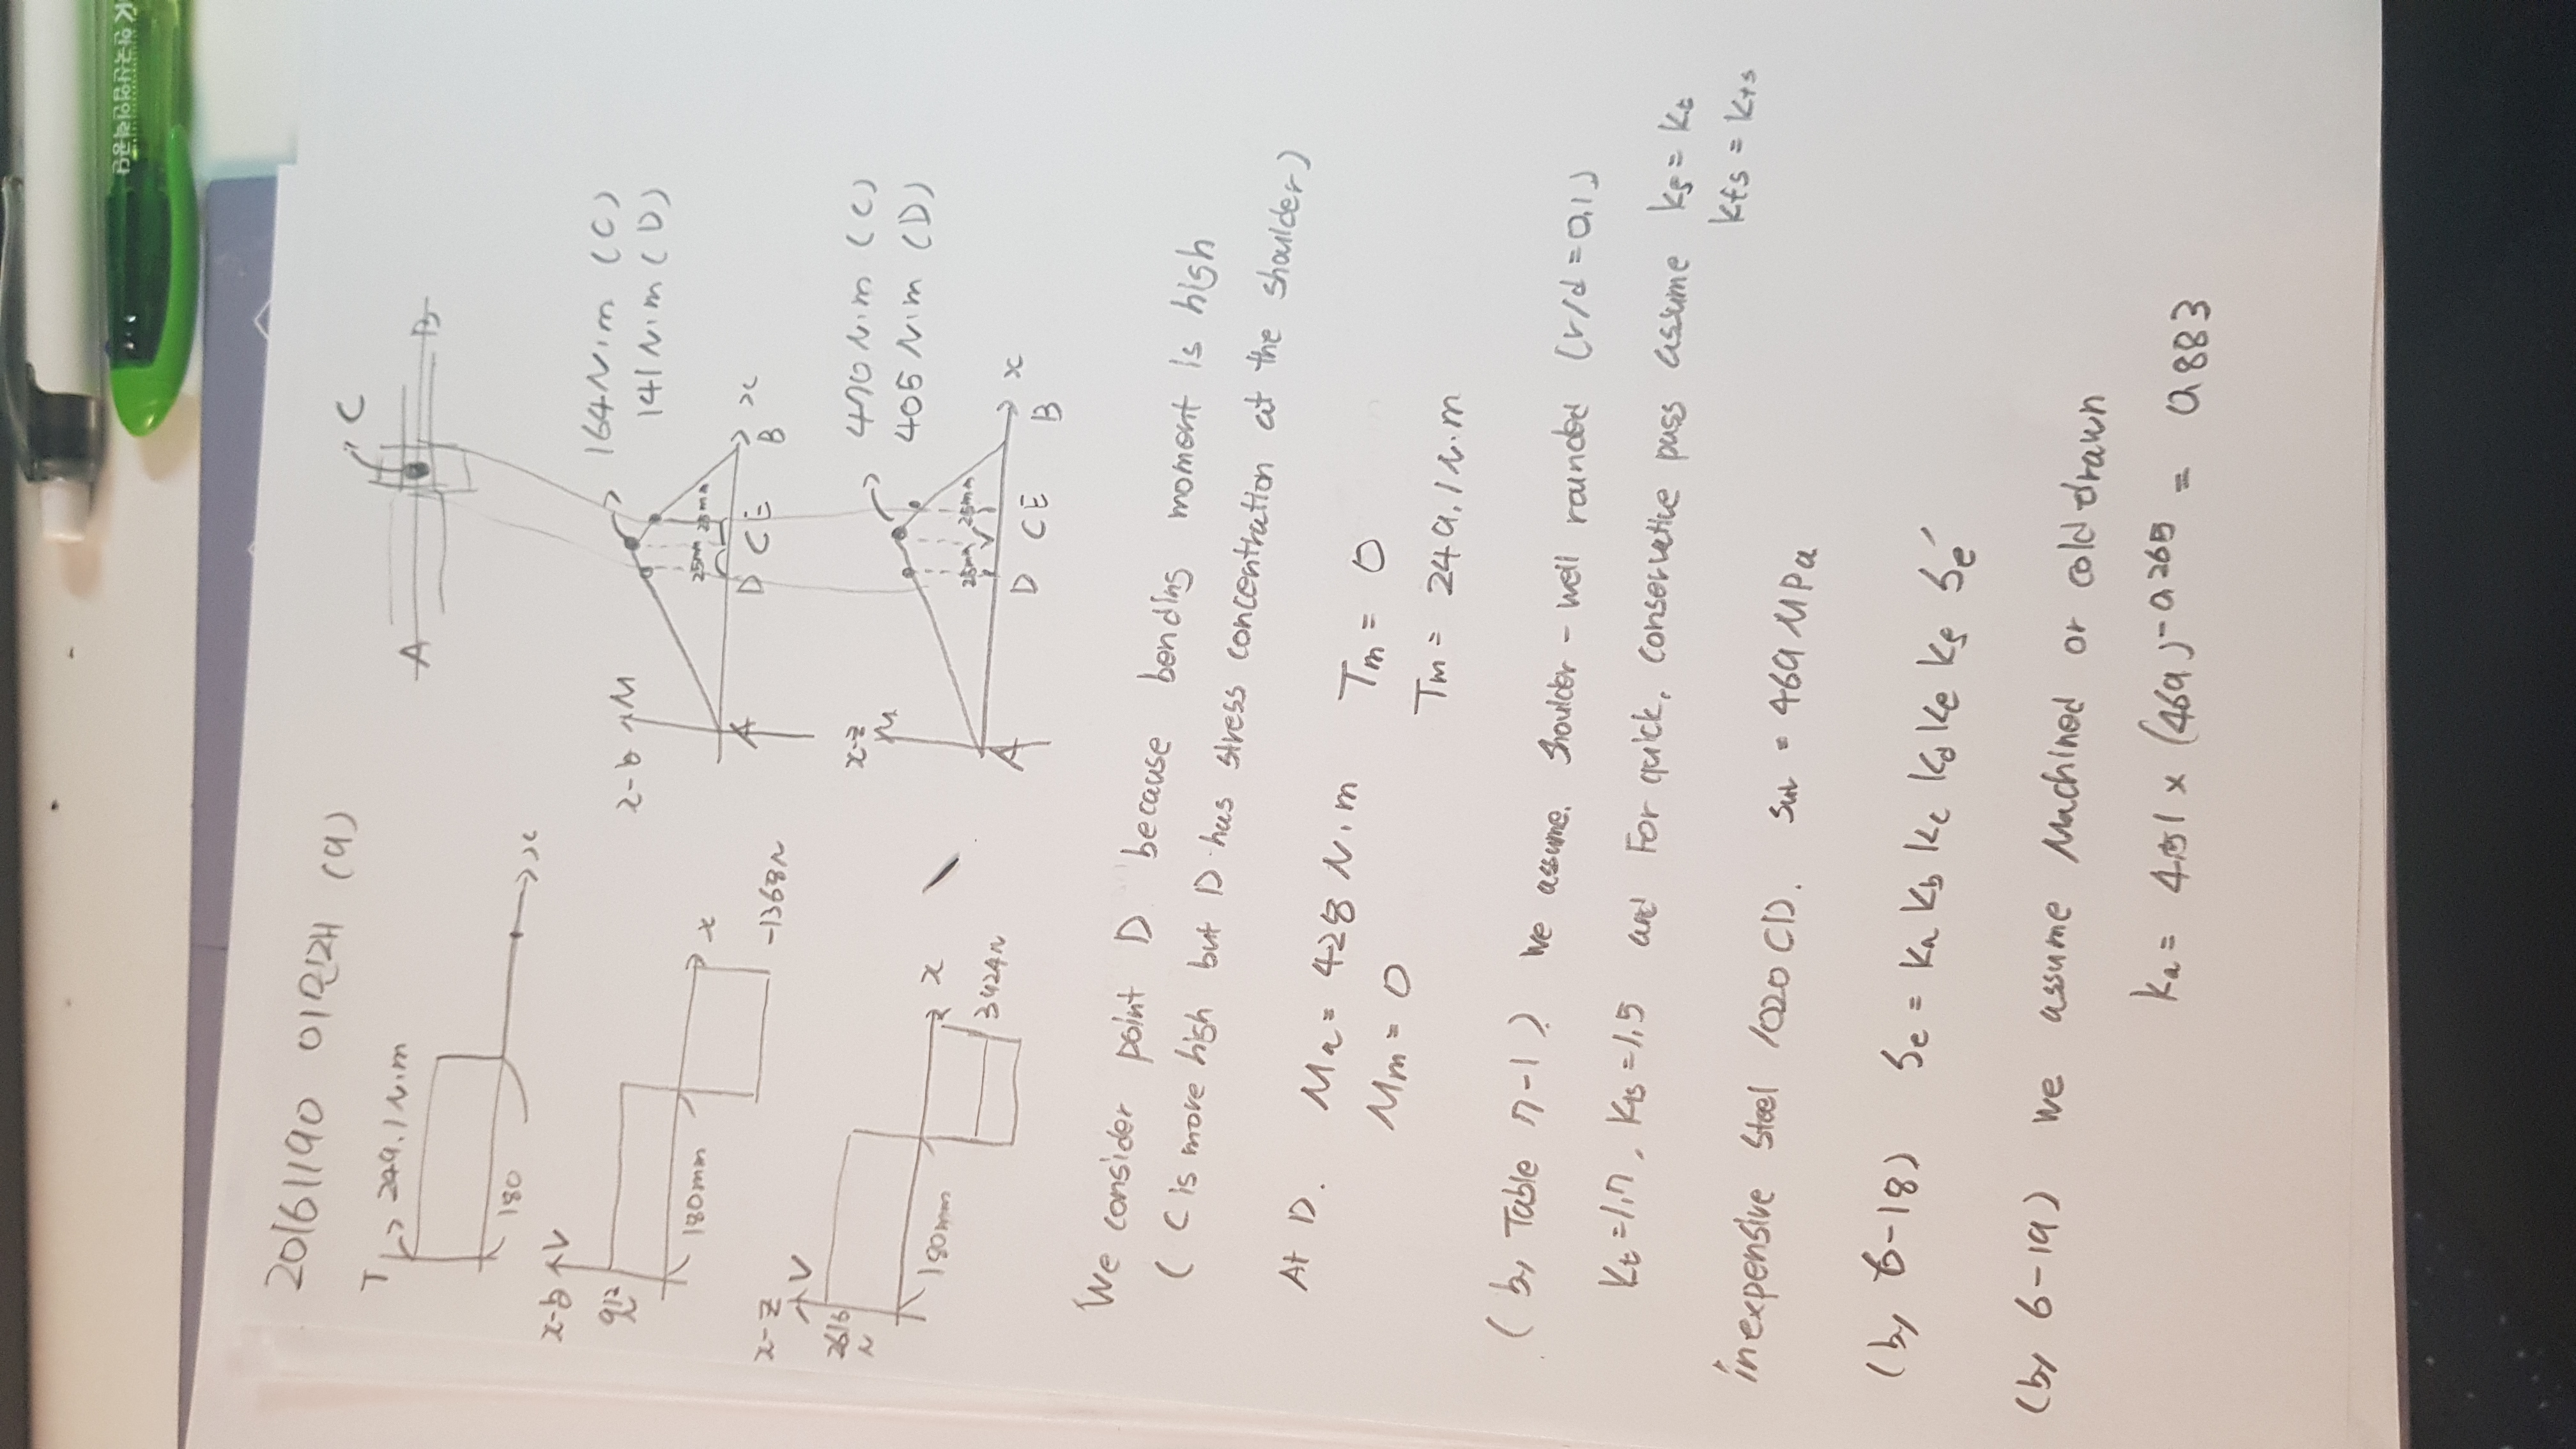 K 한국산업인력공단
20161190 이민재 (a)
T
249.1 N.m
180
x
C
A
B
x-y
V
912
N
180mm
x
-1368N
x-y
M
164 N.m (C)
141 N.m (D)
25mm
25mm
A
D
C
E
B
x
x-z
V
2616
N
180mm
x
3424N
x-z
M
470 N.m (C)
405 N.m (D)
25mm
25mm
A
D
C
E
B
x
We consider point D because bending moment is high
( C is more high but D has stress concentration at the shoulder)
At D. Ma = 428 N.m Tm = 0
Mm = 0
Tm = 249.1 N.m
(by Table 7-1) We assume. Shoulder - well rounded (r/d = 0.1)
Kt = 1.7, Kts = 1.5 and For quick, conservative pass assume kf = kt
kfs = kts
inexpensive Steel 1020 CD. Sut = 469 MPa
(by 6-18) Se = ka kb kc kd ke kf Se′
(by 6-19) We assume Machined or cold drawn
ka = 4.51 × (469)^-0.265 = 0.883